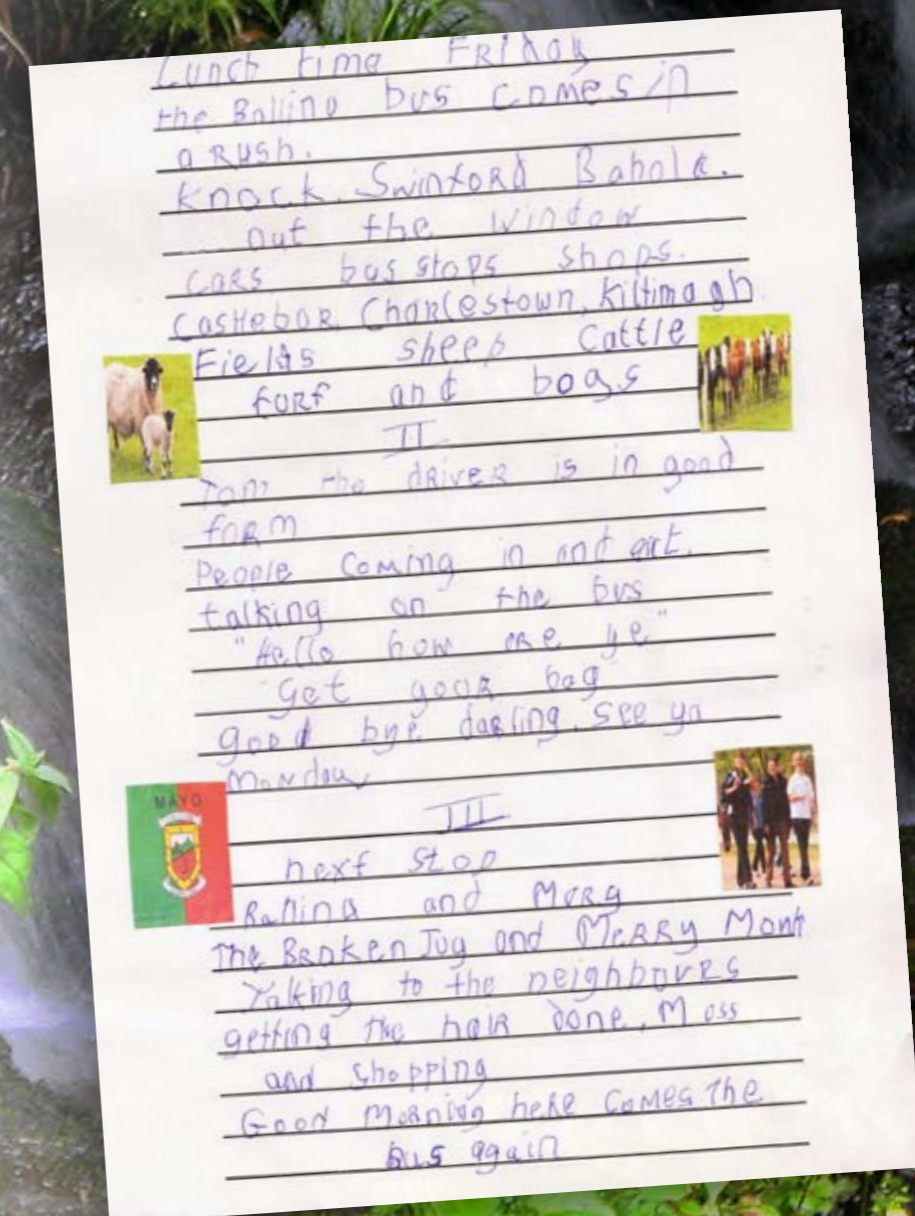 Lunch time FRiday
the Ballina bus comes in
a Rush.
Knock. SwinfoRd. Bahola.
out the window
caRs bus stops shops.
CastlebaR. ChaRlestown, Kiltimagh
Fields sheep Cattle
turf and bogs
II
Tom the dRiveR is in good
foRm
People Coming in and out.
talking on the bus
"Hello how aRe ye"
Get youR bag
good bye daRling. See ya
Monday
MAYO
III
next stop
Ballina and MaRy
The BRoken Jug and MeRRy Monk
Talking to the neighbouRs
getting the haiR done, Mass
and shopping
Good MoRning heRe Comes The
bus again